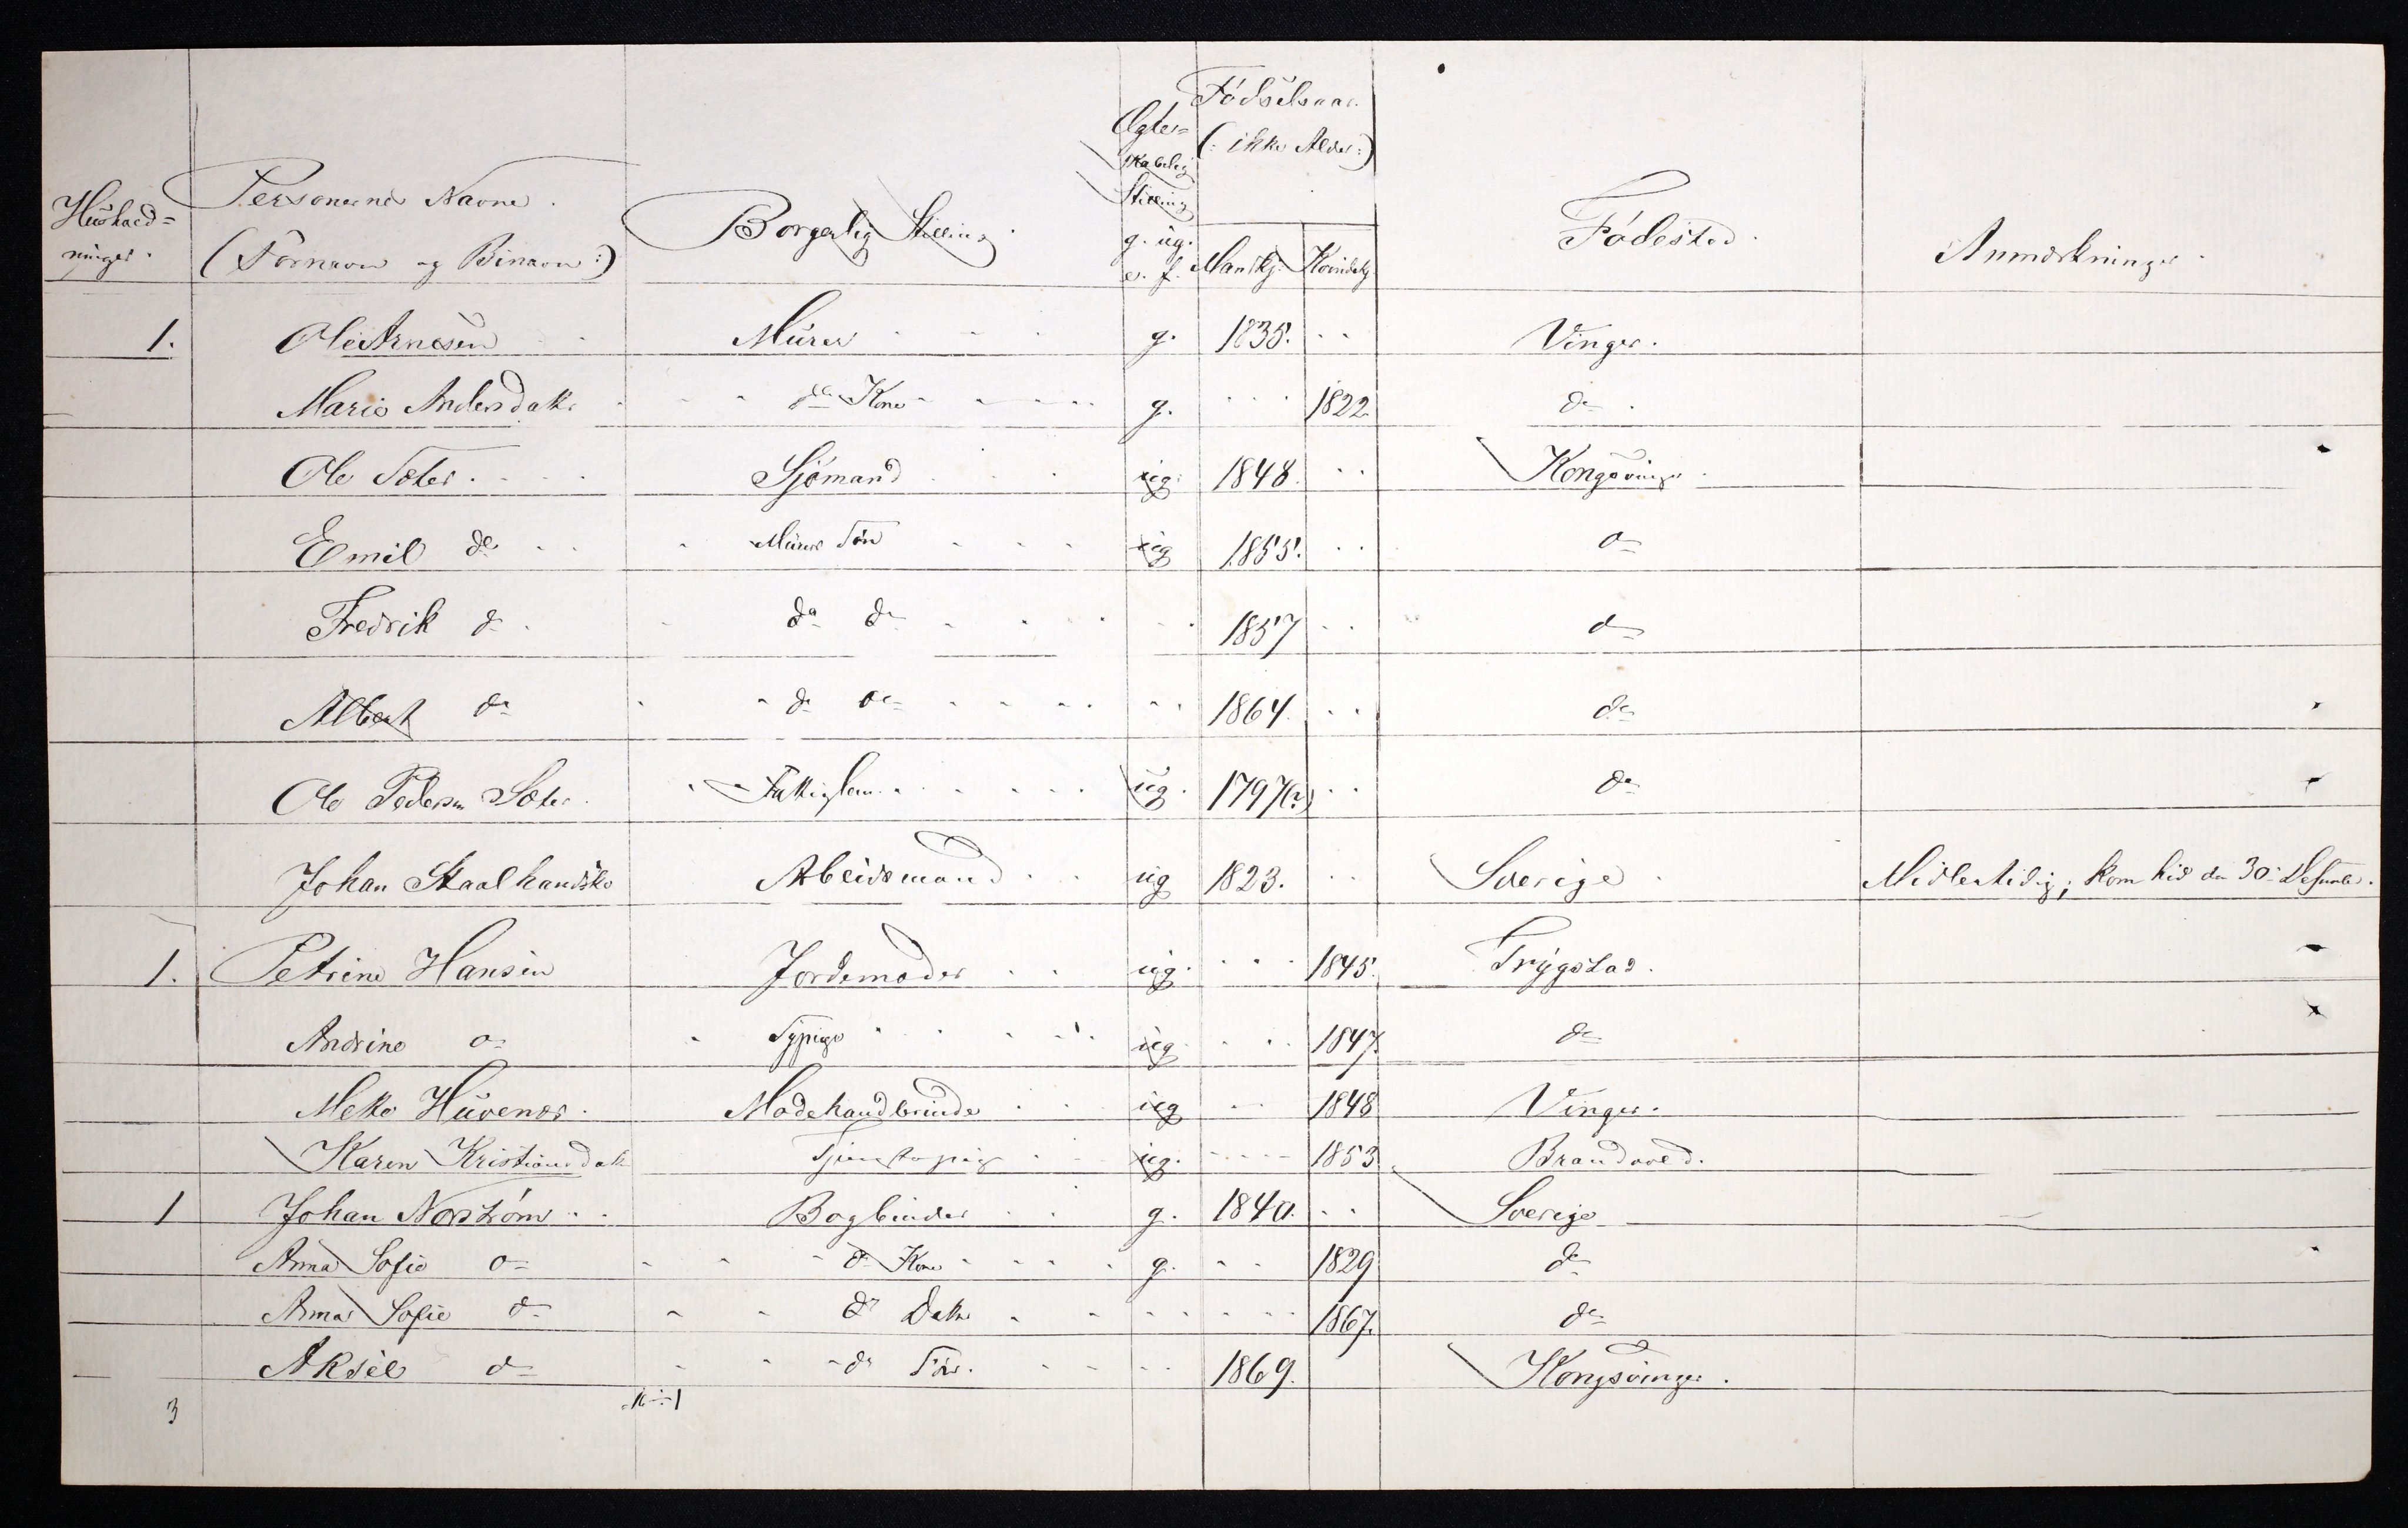 Hushold=
ninger.
Personernes Navne.
(Fornavn og Binavn:)
Borgerlig Stilling.
Ægte=
skabelig
Stilling
g. ug.
e. f.
Fødselsaar
(: ikke Alder:)
Mandkj. Kvindekj.
Fødested.
Anmærkninger.
1. Ole Arnesen Murer g. 1835. Vinger.
Marie Andersdatr. do Kone g. 1822 do.
Ole Sæter. Sjømand ug. 1848. Kongsvinger.
Emil do Murer Søn ug 1855. do
Fredrik do. do do 1857 do
Albert do do do 1864. do
Ole Pedersen Sæter. Fattiglem ug. 1797(?) do
Johan Staalhandske Abeidsmand ug 1823. Sverige. Midlertidig; kom hid den 30 Desember.
1. Petrine Hansen Jordemoder ug. 1845. Trygstad.
Andrine do Sypige ug. 1847. do
Mette Huvenes. Modehandlerinde ug 1848 Vinger.
Karen Kristiansdatr Tjenestepige ug. 1853 Brandvold.
1 Johan Norström Bogbinder g. 1840. Sverige
Anna Sofie do do Kone g. 1829 do
Anna Sofie do do Datr 1867. do
Aksel do do Søn. 1869. Kongsvinger.
3 16 ÷ 1